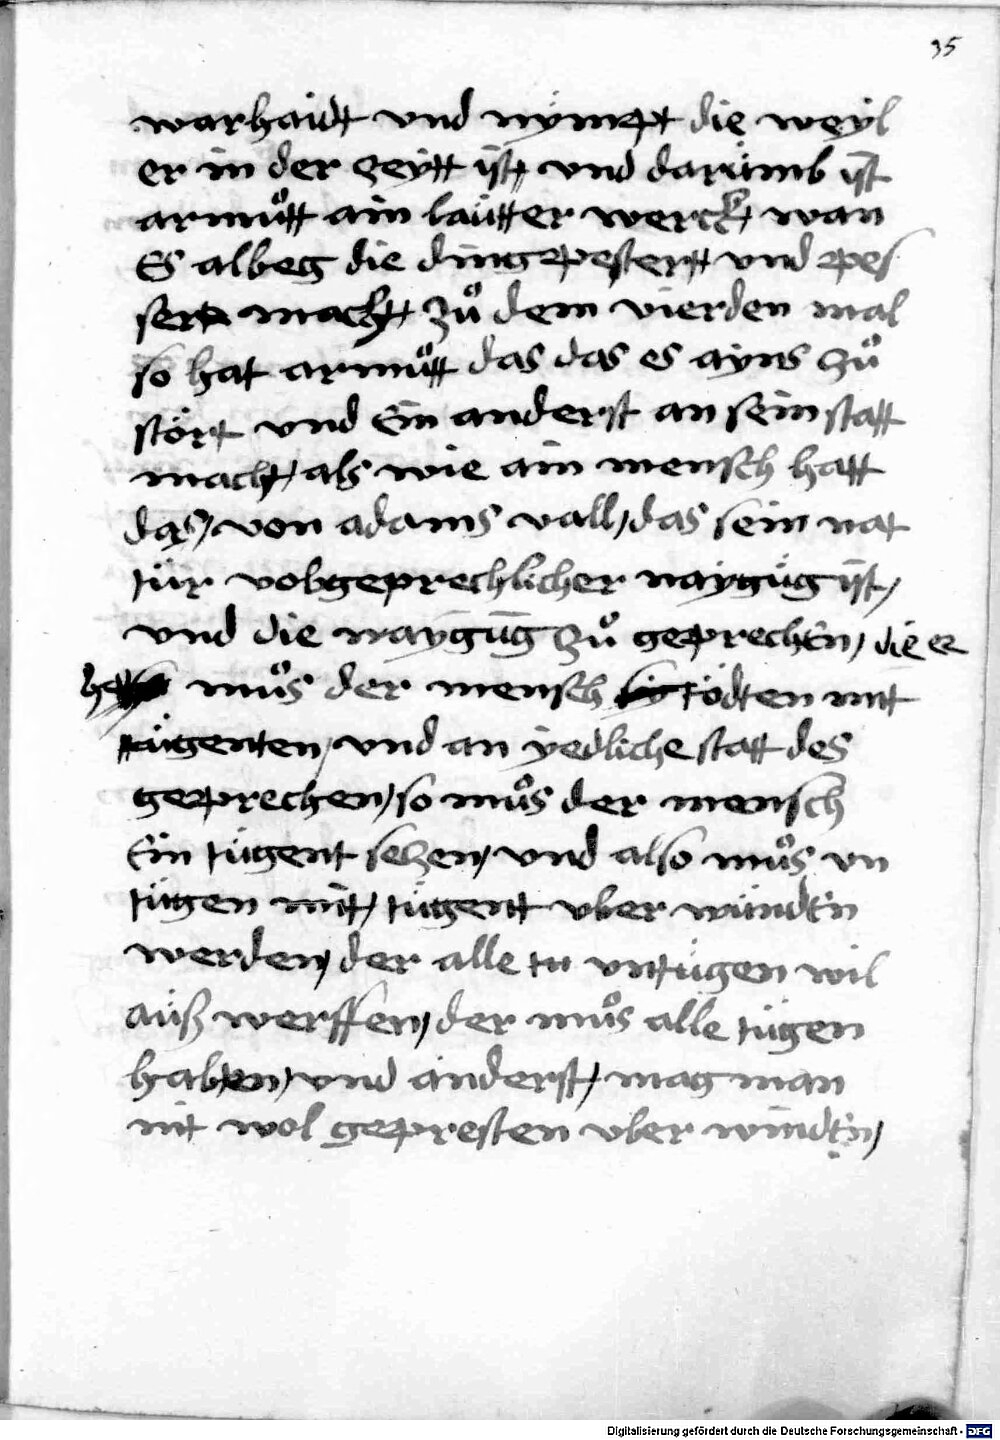 35
warhaidt vnd nÿmpt die weyl
er in der zeÿtt ist, vnd darümb ist
armůtt ain laütter werck, wan
Es albeg die ding pestertt vnd pes
sert macht, zů dem vierden mal
so hat armůtt das das es ayns zů
stört vnd Ein anderst an sein statt
macht, als wie ain mensch hatt
das, von adams vall, das sein nat
tür vobgeprechlicher naygüg ist,
vnd die naygūg zů geprechēn, die er
můs der mensch tödten mit
tügenten, vnd an yedliche statt des
geprechen, so můs der mensch
Ein tügent seczen, vnd also můs vn
tügen mit, tügent vber wündēn
werden, der alle vntügen wil
auß werffen, der můs alle tügen
haben, vnd anderst, mag man
nit wol gepresten vber windēn,
Digitalisierung gefördert durch die Deutsche Forschungsgemeinschaft - DFG